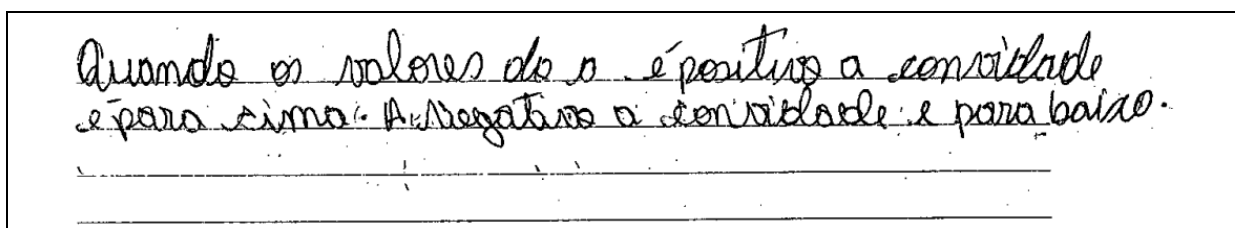 Quando os valores do a é positivo a convidade
é para cima. A Negativo a convidade e para baixo.